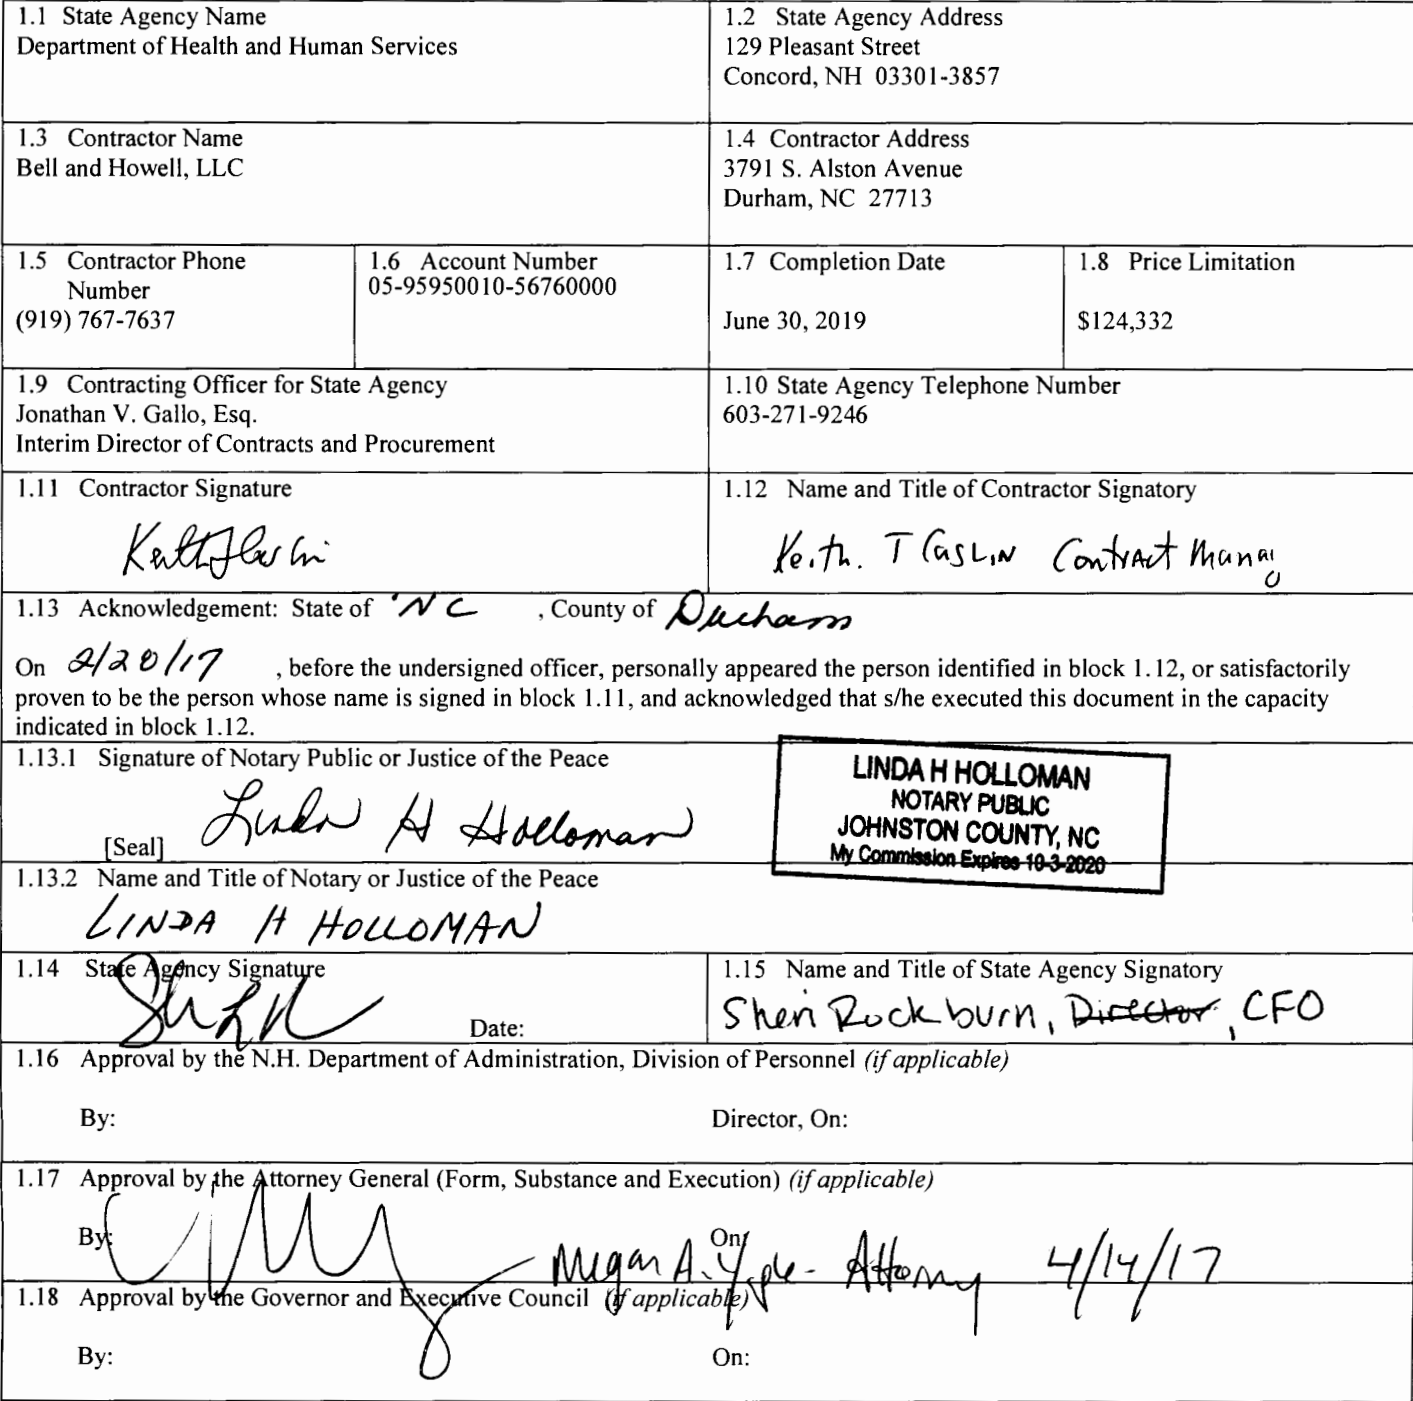 1.1 State Agency Name
Department of Health and Human Services
1.2 State Agency Address
129 Pleasant Street
Concord, NH 03301-3857
1.3 Contractor Name
Bell and Howell, LLC
1.4 Contractor Address
3791 S. Alston Avenue
Durham, NC 27713
1.5 Contractor Phone
Number
(919) 767-7637
1.6 Account Number
05-95950010-56760000
1.7 Completion Date
June 30, 2019
1.8 Price Limitation
$124,332
1.9 Contracting Officer for State Agency
Jonathan V. Gallo, Esq.
Interim Director of Contracts and Procurement
1.10 State Agency Telephone Number
603-271-9246
1.11 Contractor Signature
1.12 Name and Title of Contractor Signatory
Keith. T Caslin Contract Manag
1.13 Acknowledgement: State of NC , County of Durham
On 2/20/17 , before the undersigned officer, personally appeared the person identified in block 1.12, or satisfactorily
proven to be the person whose name is signed in block 1.11, and acknowledged that s/he executed this document in the capacity
indicated in block 1.12.
1.13.1 Signature of Notary Public or Justice of the Peace
[Seal] Linda H Holloman
LINDA H HOLLOMAN
NOTARY PUBLIC
JOHNSTON COUNTY, NC
My Commission Expires 10-3-2020
1.13.2 Name and Title of Notary or Justice of the Peace
LINDA H HOLLOMAN
1.14 State Agency Signature
Date:
1.15 Name and Title of State Agency Signatory
Sheri Rockburn, Director, CFO
1.16 Approval by the N.H. Department of Administration, Division of Personnel (if applicable)
By: Director, On:
1.17 Approval by the Attorney General (Form, Substance and Execution) (if applicable)
By: On: Megan A. Yaple - Attorney 4/14/17
1.18 Approval by the Governor and Executive Council (if applicable)
By: On: